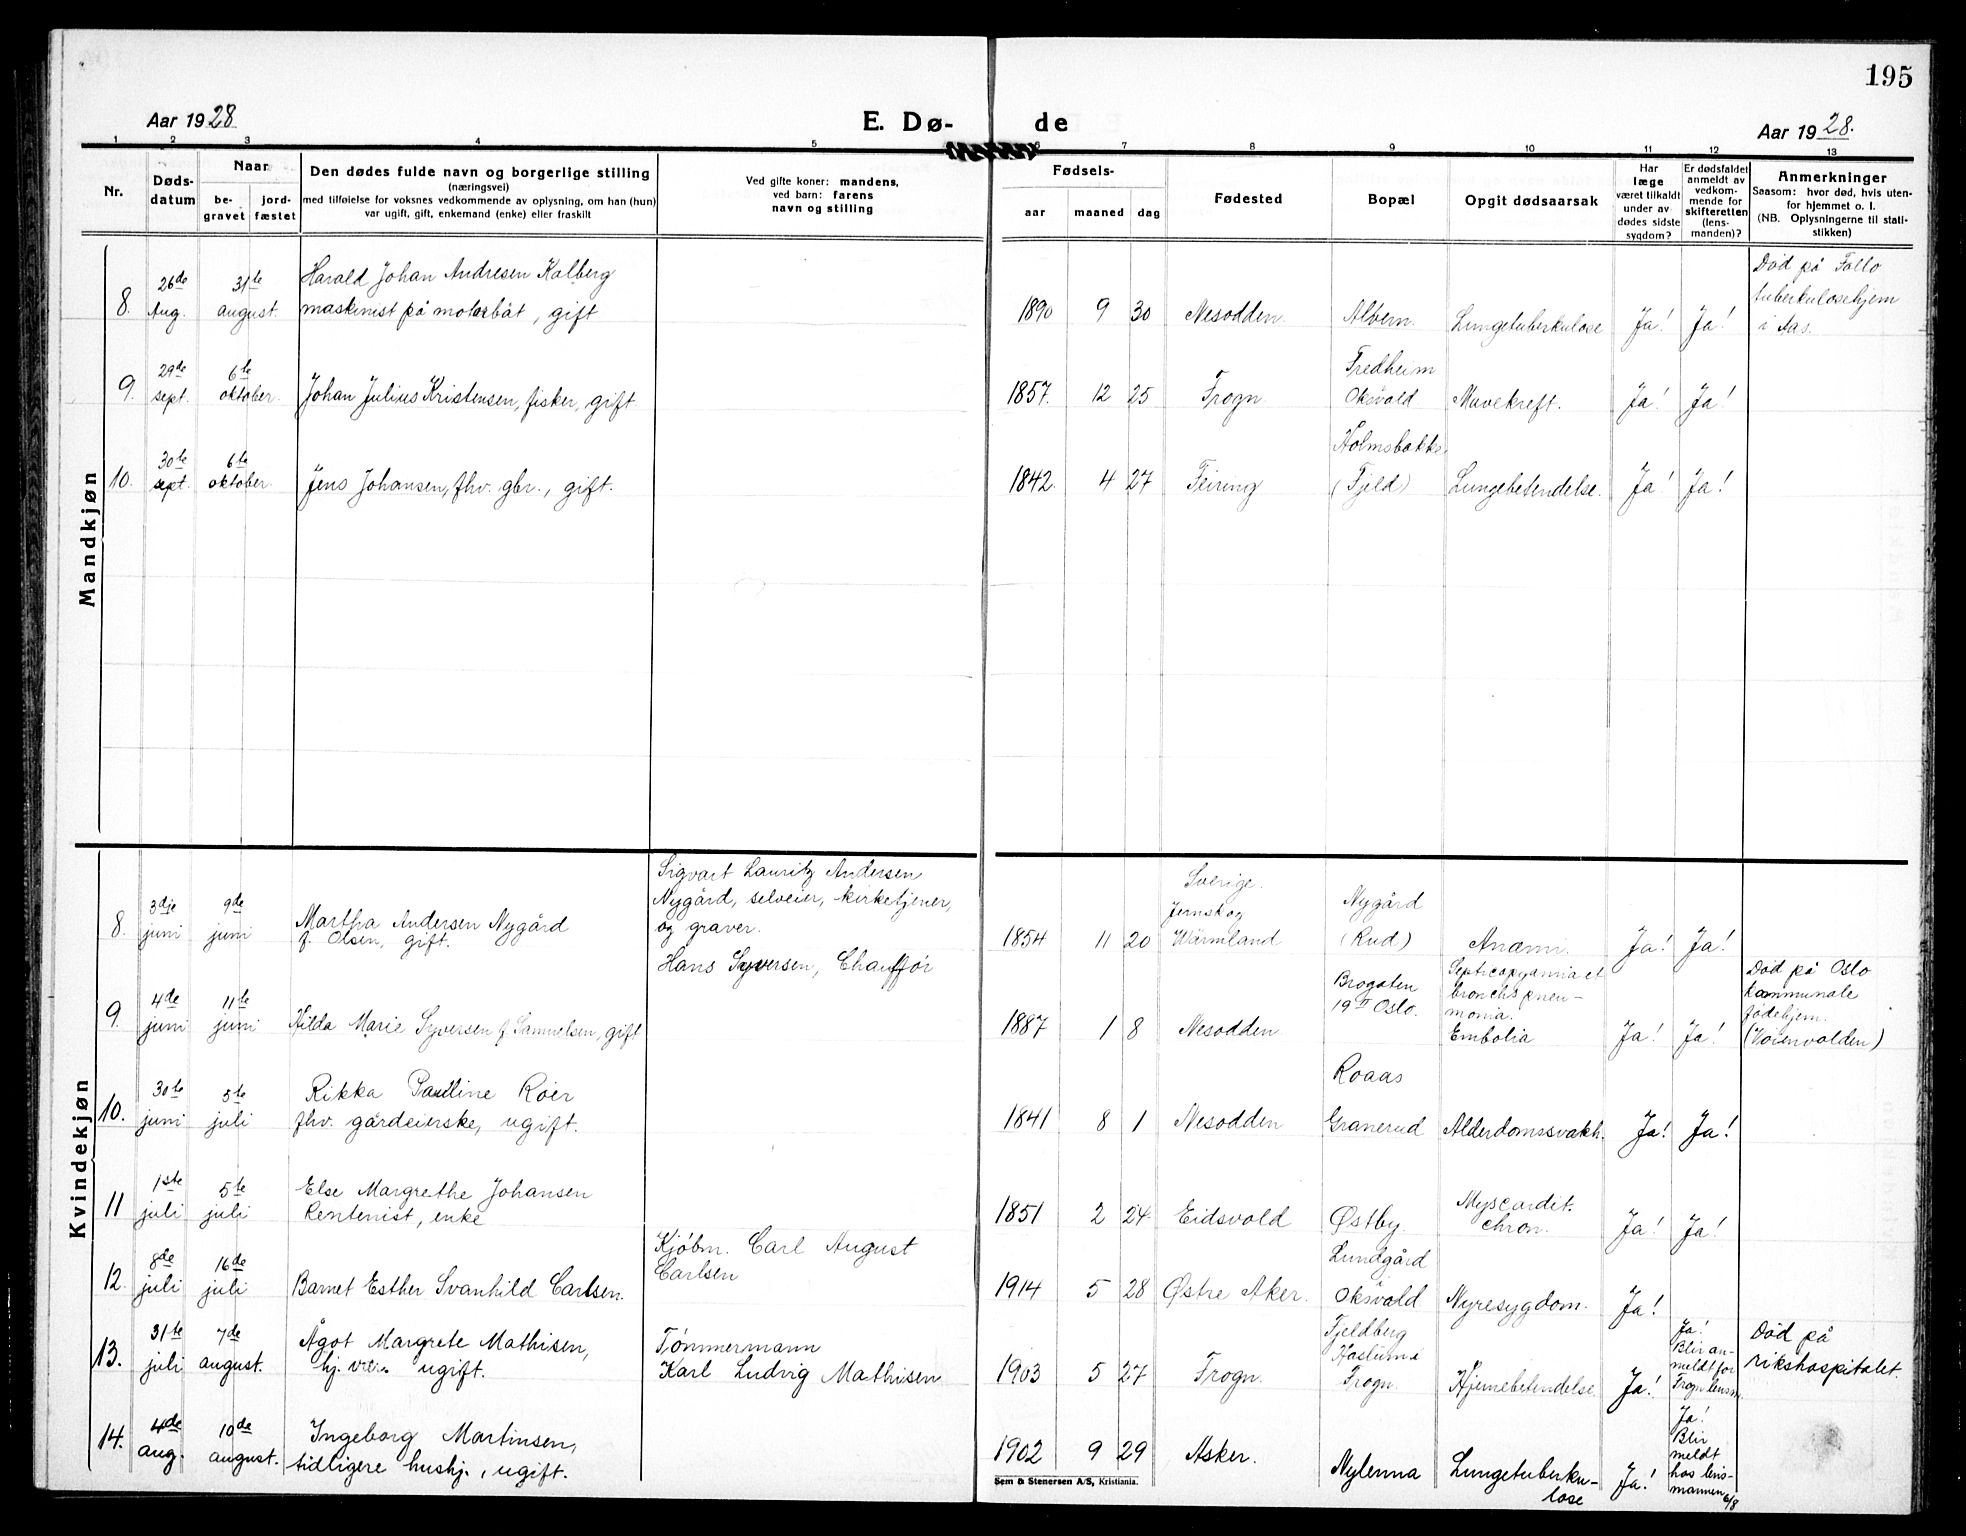 195
Aar 1928
E. Dø-
de
Aar 1928.
1 2 3 4 5 6 7 8 9 10 11 12 13
Nr.
Døds-
datum
Naar
be-
gravet
jord-
fæstet
Den dødes fulde navn og borgerlige stilling
(næringsvei)
med tilføielse for voksnes vedkommende av oplysning, om han (hun)
var ugift, gift, enkemand (enke) eller fraskilt
Ved gifte koner: mandens,
ved barn: farens
navn og stilling
Fødsels-
aar
maaned
dag
Fødested
Bopæl
Opgit dødsaarsak
Har
læge
været tilkaldt
under av
dødes sidste
sygdom?
Er dødsfaldet
anmeldt av
vedkom-
mende for
skifteretten
(lens-
manden)?
Anmerkninger
Saasom: hvor død, hvis uten-
for hjemmet o. l.
(NB. Oplysningerne til stati-
stikken)
Mandkjøn
8.
26de
Aug.
31te
august.
Harald Johan Andresen Kalberg
maskinist på motorbåt, gift
1890 9 30
Nesodden.
Alvern.
Lungetuberkulose
Ja!
Ja!
Død på Follo
tuberkulosehjem
i Aas.
9.
29de
sept.
6te
oktober.
Johan Julius Kristensen, fisker, gift
1857. 12 25
Frogn
Fredheim
Oksvold
Mavekreft.
Ja!
Ja!
10.
30te
sept.
6te
oktober.
Jens Johansen, fhv. gbr., gift.
1842. 4 27
Feiring
Holmsbakks.
(Fjeld)
Lungebetendelse.
Ja!
Ja!
Kvindekjøn
8.
3dje
juni
9de
juni
Martha Andersen Nygård
f. Olsen, gift.
Sigvart Lauritz Andersen
Nygård, selveier, kirketjener,
og graver.
1854 11 20
Sverige.
Jernskog
Wärmland
Nygård
(Rud)
Anæmi.
Ja!
Ja!
9.
4de
juni
11te
juni
Hilda Marie Syversen f. Samuelsen, gift
Hans Syversen, Chauffør
1887 1 8
Nesodden
Brogaten
19 Oslo.
Septicopyæmia et
bronchopneu-
monia.
Embolia
Ja!
Ja!
Død på Oslo
kommunale
fødehjem.
10.
30te
juni
5te
juli
Rikka Pauline Roer
fhv. gårdeierske, ugift.
1841 8 1
Nesodden
Roaas
Granerud
Alderdomssvakh.
Ja!
Ja!
11
1ste
juli
5te
juli
Else Margrethe Johansen
Rentenist, enke
1851 2 24
Eidsvold
Østby.
Myocardit.
chron.
Ja!
Ja!
12.
8de
juli
16de
juli
Barnet Esther Svanhild Carlsen.
Kjøbm. Carl August
Carlsen
1914 5 28
Østre Aker.
Lundgård
Oksvold
Nyresygdom.
Ja!
13.
31te
juli
7de
august.
Ågot Margrete Mathisen,
hj.værn. ugift.
Tømmermann
Karl Ludvig Mathisen
1903 5 27
Frogn.
Fjeldberg
Haslum i
Frogn.
Hjernebetendelse
Ja!
Ja!
Blir an-
meldt for
Frogn lensm.
Død på
rikshospitalet.
14.
4de
aug.
10de
august.
Ingeborg Martinsen,
tidligere hushj., ugift.
1902 9 29
Asker.
Nylenna
Lungetuberku-
lose
Ja!
Ja!
Blir
meldt
hos lens-
mannen 6/8
Sem & Stenersen A/S, Kristiania.